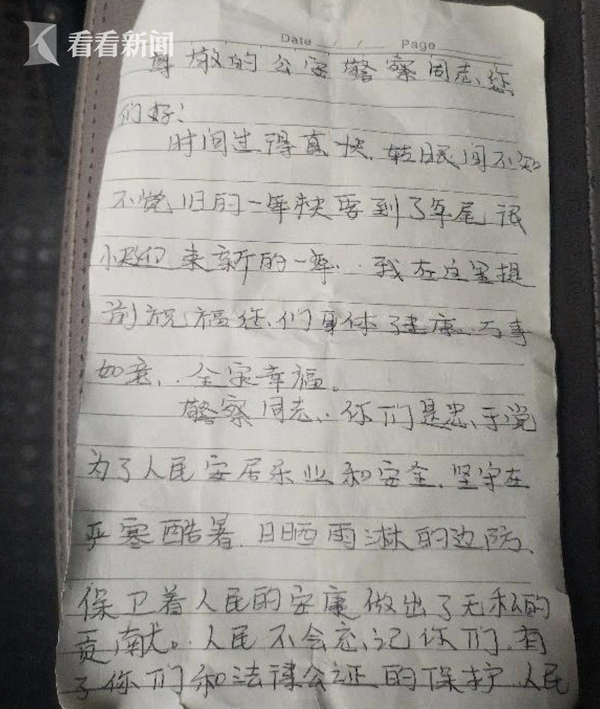 看看新闻
Date / / Page
尊敬的公安警察同志、您
们好!
时间过得真快、转眼间不知
不觉旧的一年快要到了年尾
来新的一年、我在这里提
前祝福您们身体健康、万事
如意、全家幸福。
警察同志、你们是忠于党
为了人民安居乐业和安全、坚守在
严寒酷暑、日晒雨淋的边防、
保卫着人民的安康做出了无私的
贡献。人民不会忘记你们、有
了你们和法律公证的保护、人民